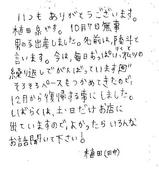 いつも ありがとうございます。
植田京です。10月7日無事
男の子出産しました。名前は、陸斗と
言います。今は、毎日おっぱい、オムツの
繰り返しでがんばっています。
そろそろペースもつかめてきたので、
12月から復帰する事にしました。
しばらくは、土・日だけお店に
出ていますので、よかったら いろんな
お話聞いて下さい。
植田